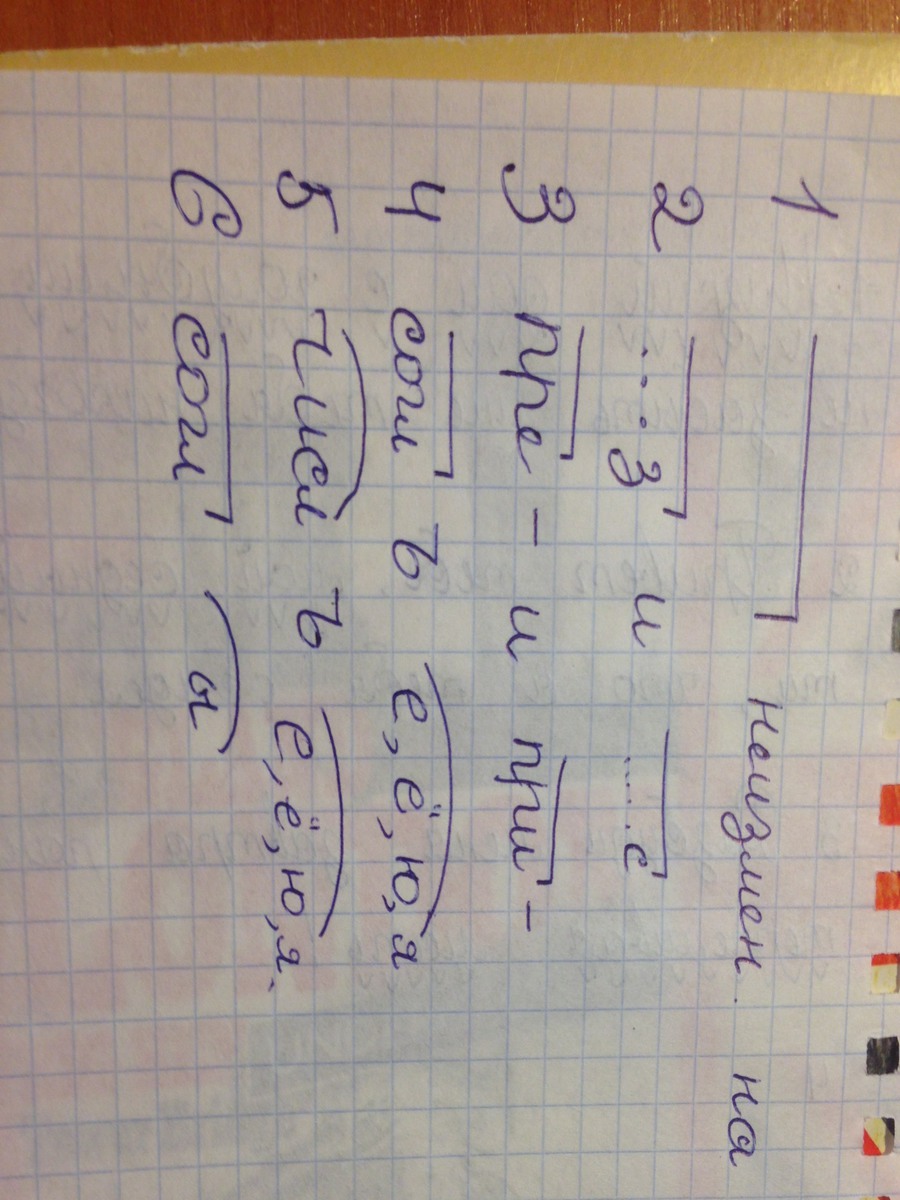 1 неизмен. на
2 ...з и ...с
3 пре- и при-
4 согл ъ е, ё, ю, я
5 числ ъ е, ё, ю, я.
6 согл ы